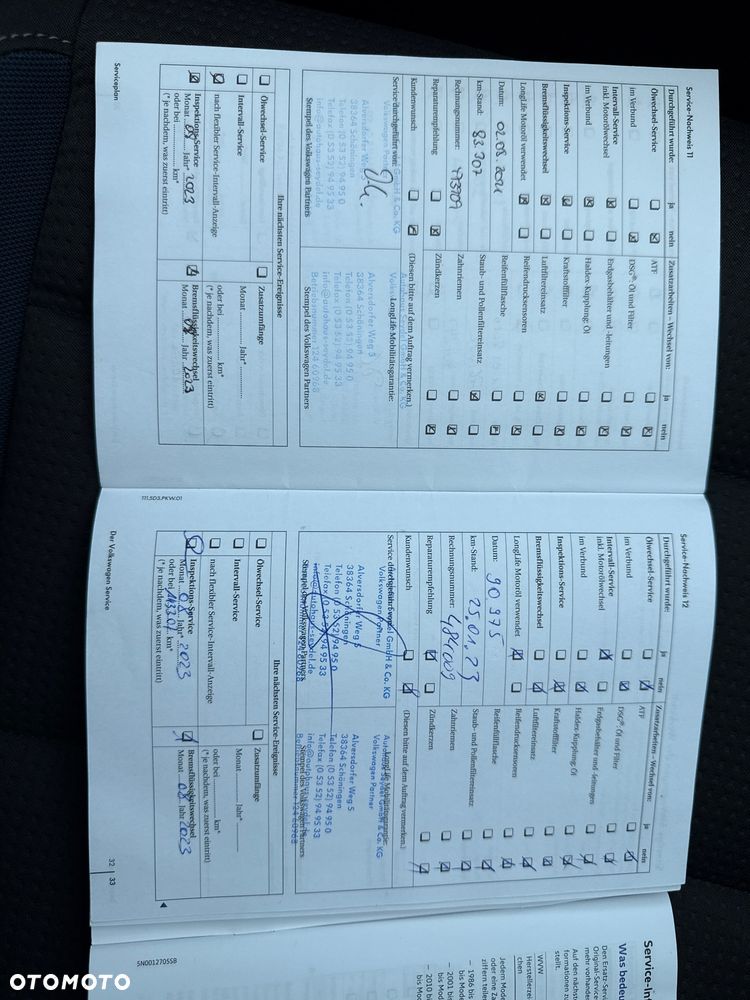 Serviceplan
Service-Nachweis 11
Durchgeführt wurde:
ja
nein
Ölwechsel-Service
im Verbund
Intervall-Service
inkl. Motorölwechsel
im Verbund
Inspektions-Service
Bremsflüssigkeitswechsel
LongLife Motoröl verwendet
Datum:
km-Stand: 83.307
Rechnungsnummer:
Reparaturempfehlung
Kundenwunsch
Service durchgeführt von:
Alversdorfer Weg 5
38364 Schöningen
Telefon (0 53 52) 94 95 0
Telefax (0 53 52) 94 95 33
info@autohaus-seydel.de
Stempel des Volkswagen Partners
Zusatzarbeiten – Wechsel von:
ja
nein
ATF
DSG®: Öl und Filter
Erdgasbehälter und -leitungen
Haldex-Kupplung: Öl
Kraftstofffilter
Luftfiltereinsatz
Reifendrucksensoren
Reifenfüllflasche
Staub- und Pollenfiltereinsatz
Zahnriemen
Zündkerzen
(Diesen bitte auf dem Auftrag vermerken.)
LongLife Mobilitätsgarantie:
Autohaus Seydel GmbH & Co. KG
Alversdorfer Weg 5
38364 Schöningen
Telefon (0 53 52) 94 95 0
Telefax (0 53 52) 94 95 33
info@autohaus-seydel.de
Stempel des Volkswagen Partners
Ihre nächsten Service-Ereignisse
Ölwechsel-Service
Intervall-Service
nach flexibler Service-Intervall-Anzeige
Inspektions-Service
Monat 08 Jahr* 2023
oder bei km*
(* je nachdem, was zuerst eintritt)
Zusatzumfänge
Monat Jahr*
oder bei km*
(* je nachdem, was zuerst eintritt)
Bremsflüssigkeitswechsel
Monat 08 Jahr 2023
111.5D3.PKW.01
Der Volkswagen Service
Service-Nachweis 12
Durchgeführt wurde:
ja
nein
Ölwechsel-Service
im Verbund
Intervall-Service
inkl. Motorölwechsel
im Verbund
Inspektions-Service
Bremsflüssigkeitswechsel
LongLife Motoröl verwendet
Datum: 90.975
km-Stand: 25.01.23
Rechnungsnummer: 484009
Reparaturempfehlung
Kundenwunsch
Service durchgeführt von:
Autohaus Seydel GmbH & Co. KG
Volkswagen Partner
Alversdorfer Weg 5
38364 Schöningen
Telefon (0 53 52) 94 95 0
Telefax (0 53 52) 94 95 33
info@autohaus-seydel.de
Stempel des Volkswagen Partners
Zusatzarbeiten – Wechsel von:
ja
nein
ATF
DSG®: Öl und Filter
Erdgasbehälter und -leitungen
Haldex-Kupplung: Öl
Kraftstofffilter
Luftfiltereinsatz
Reifendrucksensoren
Reifenfüllflasche
Staub- und Pollenfiltereinsatz
Zahnriemen
Zündkerzen
(Diesen bitte auf dem Auftrag vermerken.)
LongLife Mobilitätsgarantie:
Autohaus Seydel GmbH & Co. KG
Volkswagen Partner
Alversdorfer Weg 5
38364 Schöningen
Telefon (0 53 52) 94 95 0
Telefax (0 53 52) 94 95 33
info@autohaus-seydel.de
Stempel des Volkswagen Partners
Ihre nächsten Service-Ereignisse
Ölwechsel-Service
Intervall-Service
nach flexibler Service-Intervall-Anzeige
Inspektions-Service
Monat 08 Jahr* 2023
oder bei 113307 km*
(* je nachdem, was zuerst eintritt)
Zusatzumfänge
Monat Jahr*
oder bei km*
(* je nachdem, was zuerst eintritt)
Bremsflüssigkeitswechsel
Monat 08 Jahr 2023
32 | 33
5N0012705SB
Was bedeu
Den Ersatz-Serv
Original-Service
mehr vorhander
Auf den nächste
formationen zu
stellt.
WVW
Herstellerzei
chen
Jedem Mode
oder eine Za
ziffern teile
– 1986 bis
bis Mode
– 2001 b
bis Mod
– 2010 b
bis Mo
OTOMOTO